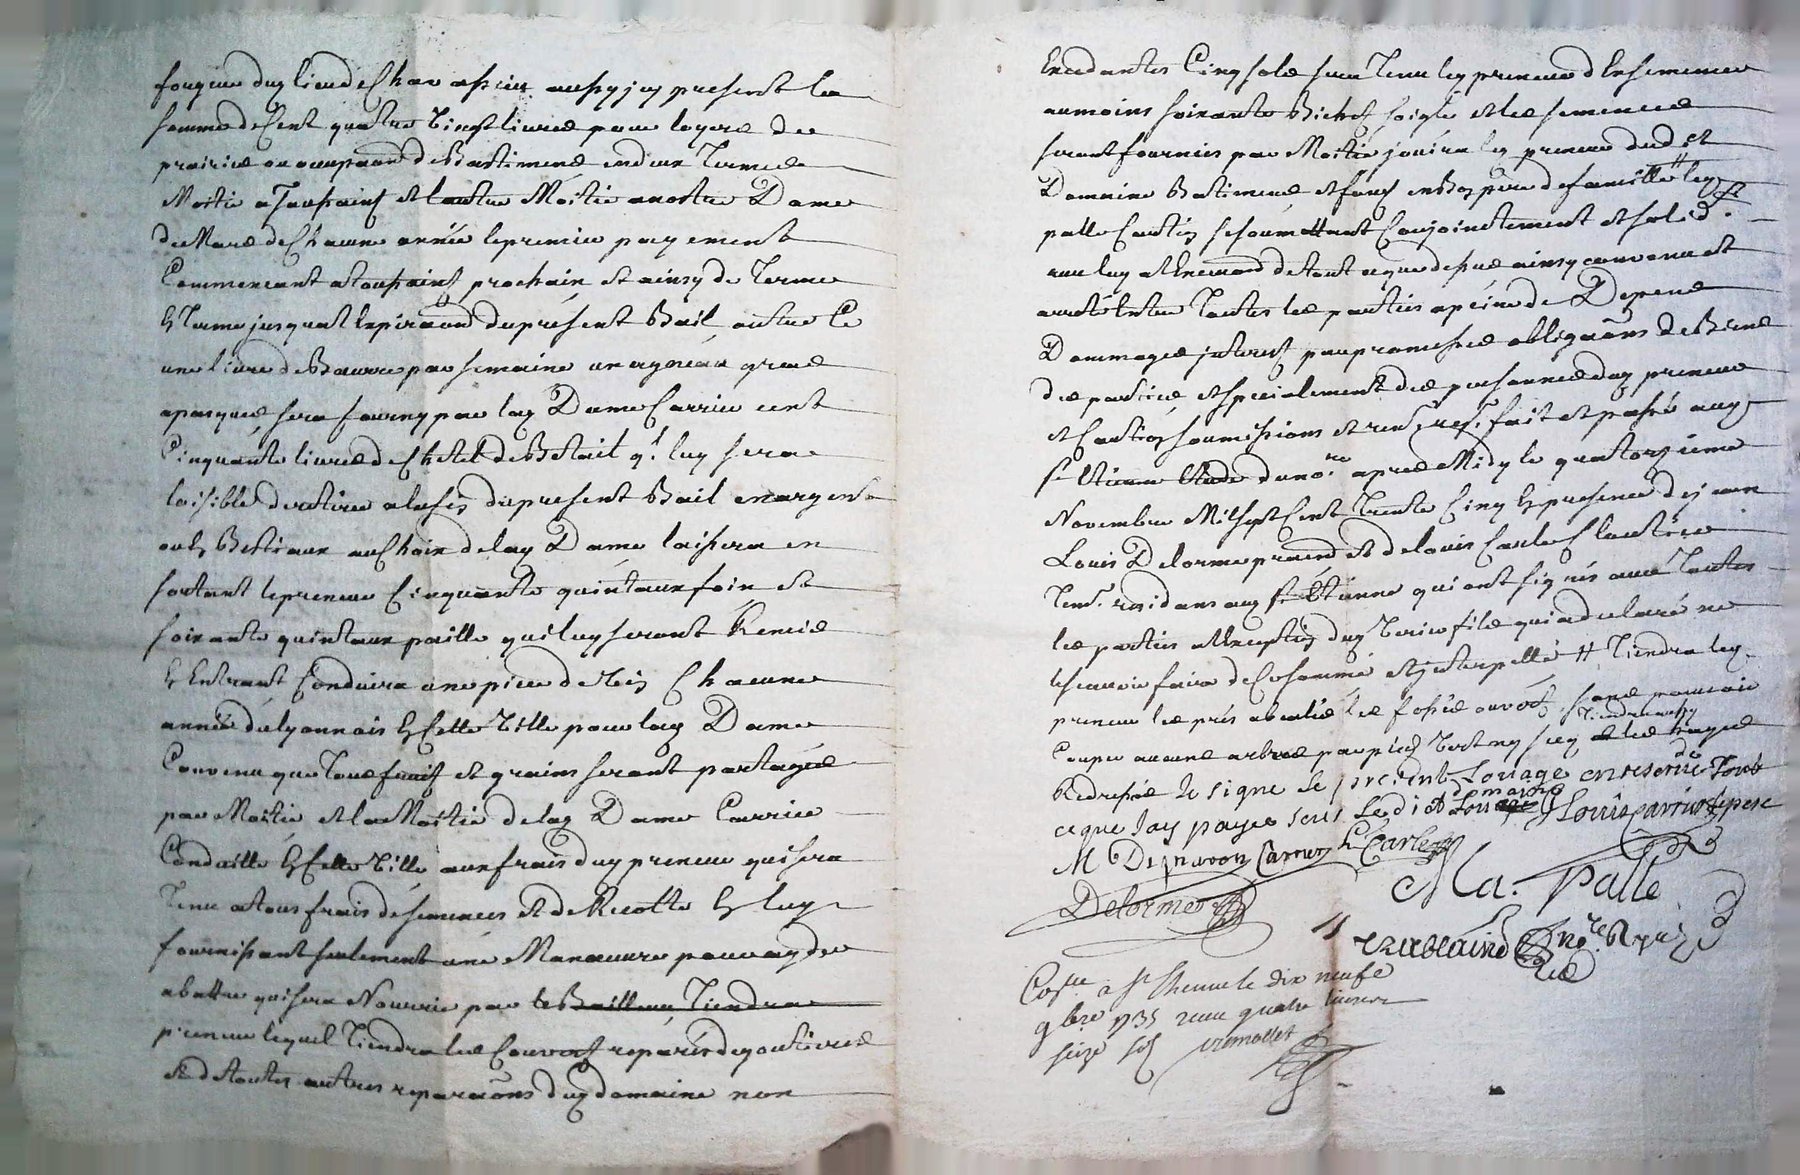 somme de Cent quatre vingt livres pour loyers de
prairies ou occupaōn de Bastimens en deux Termes
Moitié a Toussaint et lautre Moitié a nostre Dame
de Mars de Chacune année le premier payement
Commencant a toussaint prochain et ainsy de Terme
En Terme jusqua lExpiraōn du présent Bail outre Ce
une livre de Beurre par semaine un agneau gras
a pasques sera fourny par lad Dame Carrier cent
Cinquante livres de Chetel de Betail qͥ luy sera
loisible de retirer a la fin du present Bail en argent
ou En Bestiaux au Choix de lad Dame laissera en
sortant le preneur Cinquante quintaux foin et
soixante quintaux paille qui luy seront Remis
En Entrant Conduira une piece de vin Chacune
année du lyonnois En Cette Ville pour lad Dame
Convenu que Tous fruits et grains seront partagés
par Moitié et la Moitié de lad Dame Carrier
Conduitte En Cette Ville aux frais dud preneur qui sera
Tenu a tous frais de semences et de Recolte En luy
fournissant seulement une Manœuvre pour ayder
a battre qui sera Nourrie par le Bailleur Tiendra
preneur lequel Tiendra les Couverts reparés de goutieres
et de toutes autres reparaōns dud domaine non
Excedantes Cinq sols sera Tenu led preneur dEnsemencer
au moins soixante Bichets soigle et les semences
seront fournies par Moitié jouira led preneur dud
Domaine Batimens et fonds en Bon pere de famille led
palle Caution se soumettant Conjointement et solid.
arreté Entre Toutes les parties a peine de Depens
Dommages interests par promesses obligaōns de Biens
des parties et specialement des personnes dud preneur
et Caution soumissions et fait et passé aud
Sͭ Etienne Etude du noͬͤ apres Midy le quatorzieme
Novembre Mil sept Cent Trente Cinq En presence de jean
Louis Delorme praticien et de louis Carles Clautier
residans aud Sͭ Etienne qui ont signés avec Toutes
les parties a lException dud Verier fils qui a declaré ne
scavoir faire de Ce sommé et interpellé # Tiendra led
preneur les prés les fossés ouverts sans pouvoir
Couper aucuns arbres par pied vert ny sec
Tiendra aussy
Redressé Je signe le present Louage en reserve de Tout
ce que jay payee sens Ledict
domaine
Louis Carrier le pere
Mͭ Depinavon Carrier
L Carles
Delorme
Ma. Palle
noͬͤ Ryal
Coⁿˡᵉ a Sͭ Etienne le dix neufe
9bre 1735 reçu quatre livres
seize sols